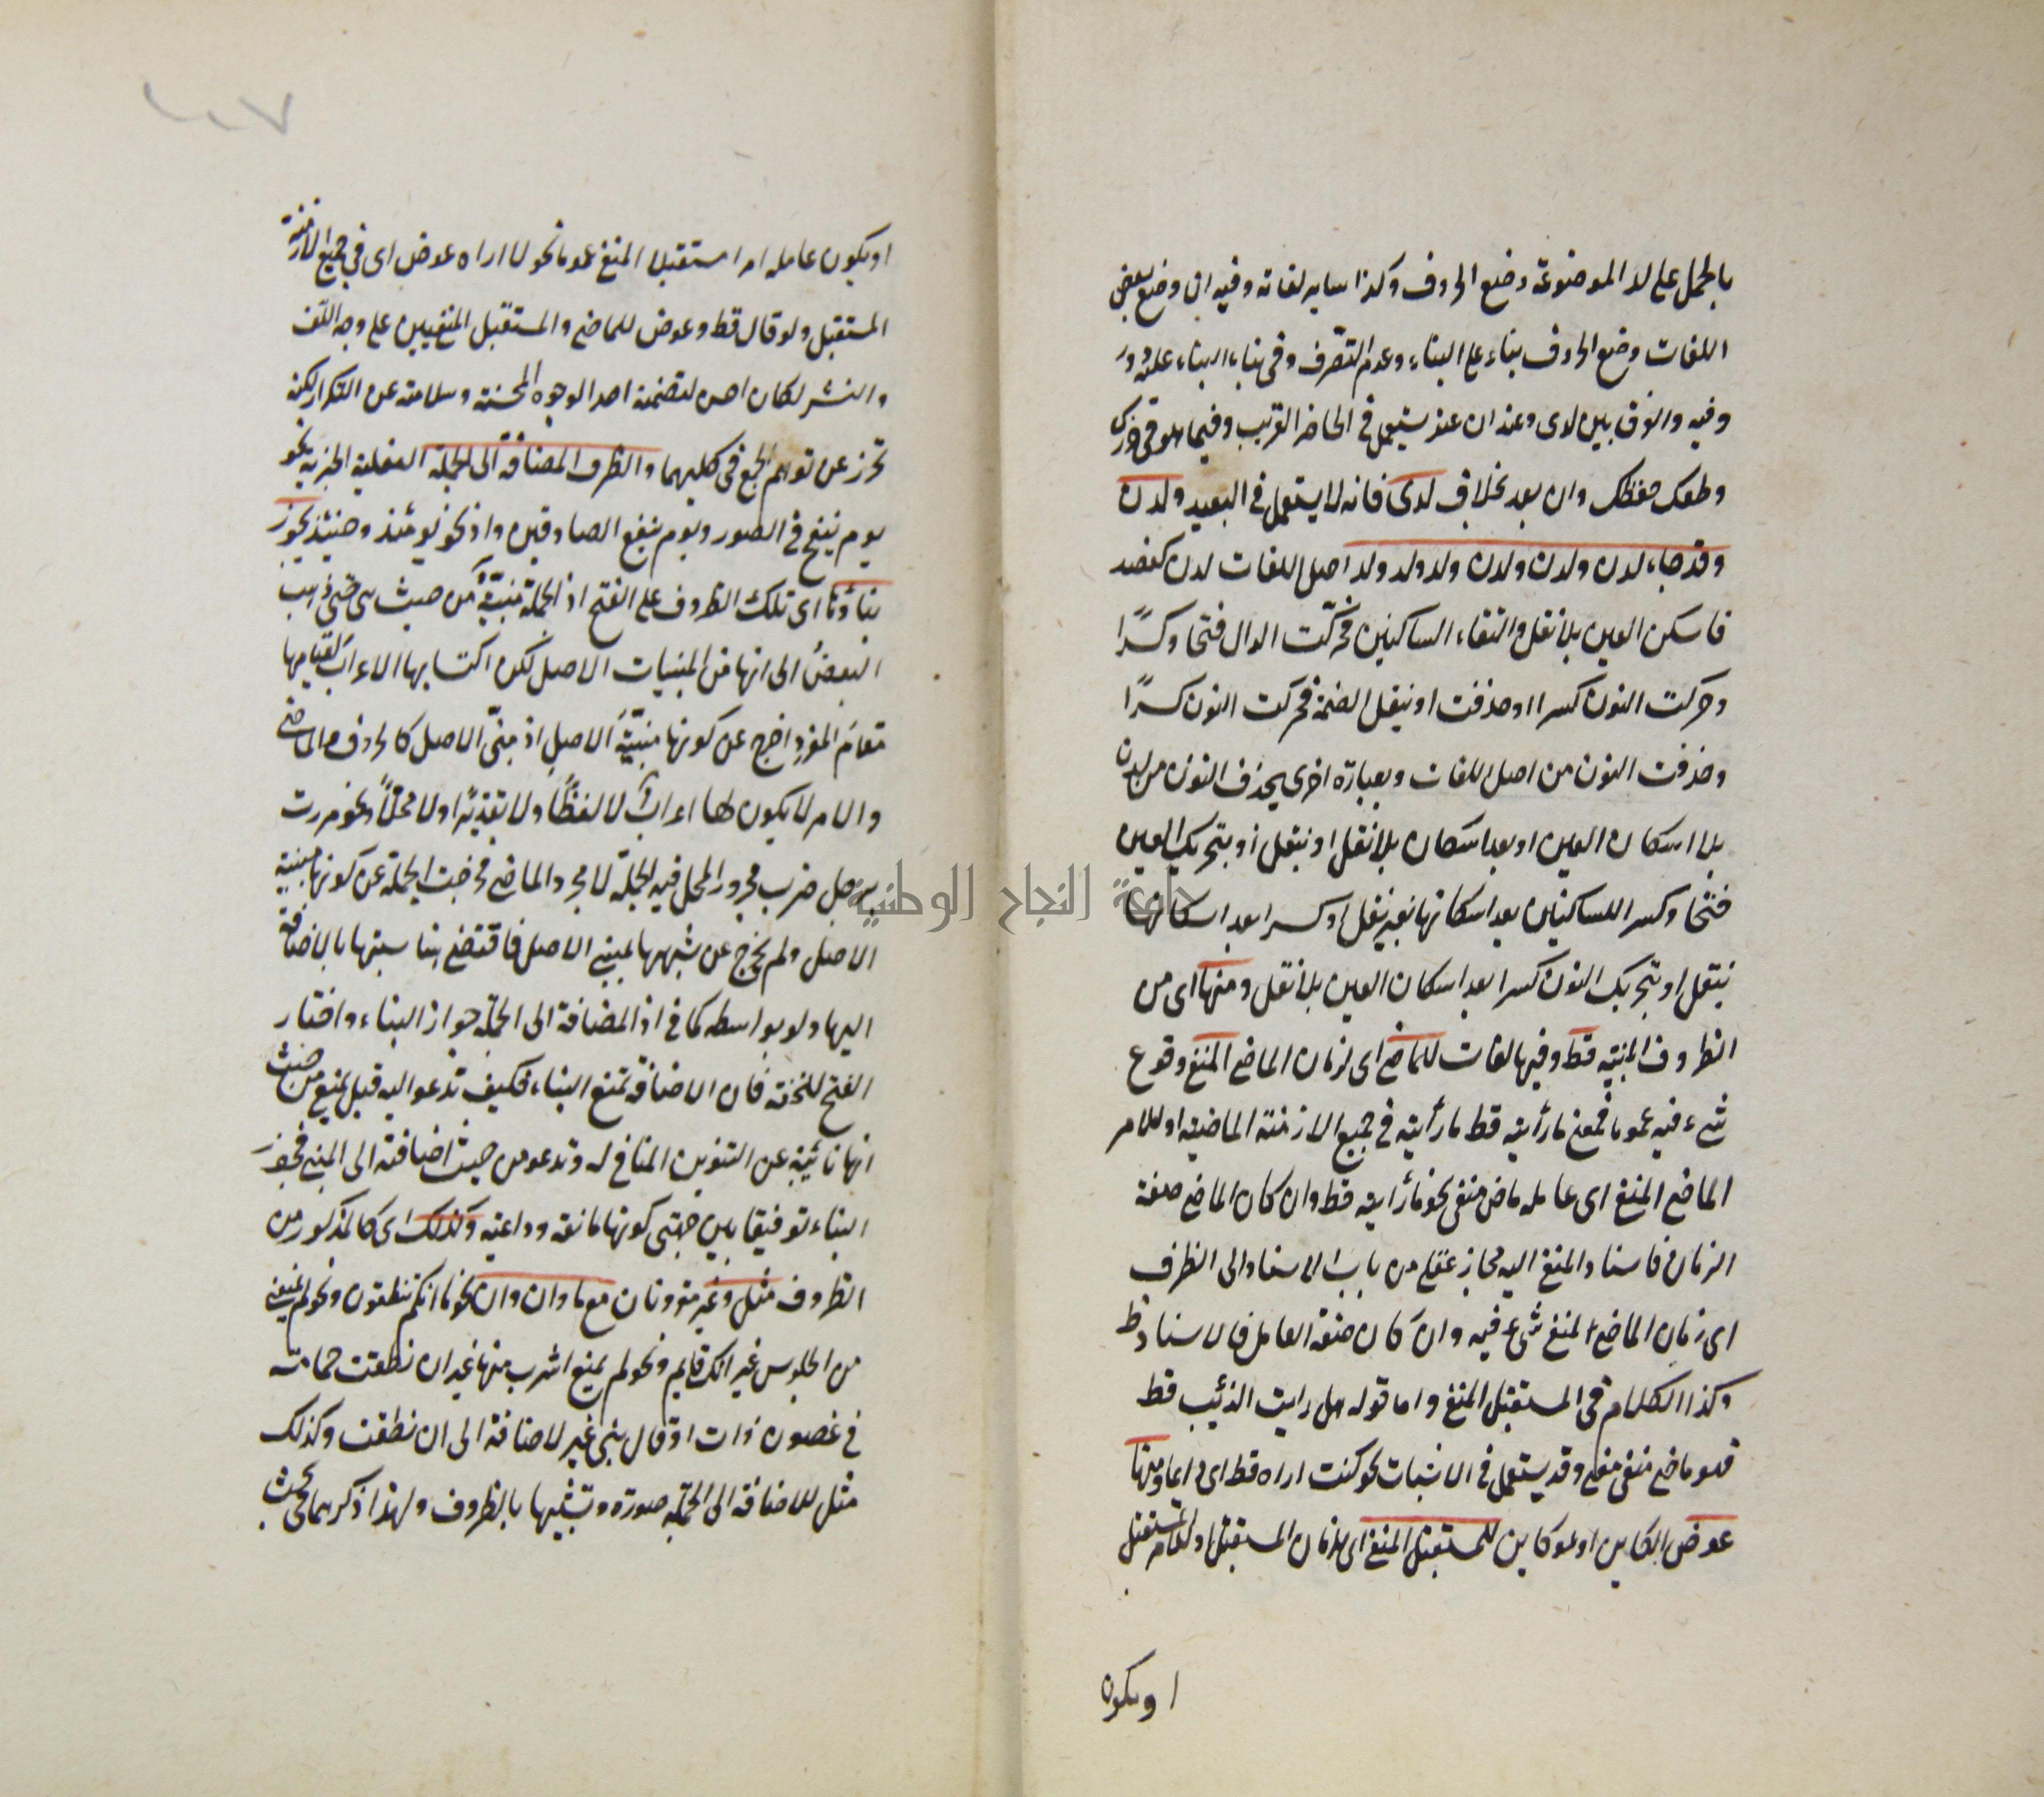 بالحمل على لد الموضوعة وضع الحروف وكذا سائر لغاته وفيه ان وضع بعض
اللغات وضع الحروف بناء على البناء وعدم التصرف وفى بناء البناء عليه دور
وفيه والفرق بين لدى وعند ان عند يستعمل فى الحاضر القريب وفيما هو فى حرزك
وان بعد بخلاف لدى فانه لا يستعمل فى البعيد ولدن
وقد جاء لدن ولدن ولدن ولد ولد ولد اصل اللغات لدن كعضد
فاسكن العين بلا نقل والتقاء الساكنين فحركت الدال فتحا وكسرًا
وحركت النون كسرا او حذفت او بنقل الضمة فحركت النون كسرًا
وحذفت النون من اصل اللغات وبعبارة اخرى بحذف النون من لدن
بلا اسكان العين او بعد اسكان بلا نقل او بنقل او بتحريك العين
فتحا وكسرا للساكنين بعد اسكانها بغير نقل او كسرا بعد اسكانها
بنقل او بتحريك النون كسرا بعد اسكان العين بلا نقل ومنها اى من
الظروف المبنية قط وفيها لغات للماضى اى لزمان الماضى المنفى وقوع
شىء فيه عموما فمعنى ما رأيته قط ما رأيته فى جميع الازمنة الماضية او للامر
الماضى المنفى اى عامله ماض منفى نحو ما رأيته قط وان كان الماضى صفة
الزمان فاسناد المنفى اليه مجاز عقلى من باب الاسناد الى الظرف
اى زمان الماضى المنفى شىء فيه وان كان صفة العامل فالاسناد ظ
وكذا الكلام فى المستقبل المنفى واما قوله هل رايت الذئب قط
فهو ماض منفى معنى وقد يستعمل فى الاثبات نحو كنت اراه قط اى دايما ومنها
عوض الكاين او هو كاين للمستقبل المنفى اى لزمان المستقبل او للامر المستقبل
او يكون
١٠٧
او يكون عامله امرا مستقبلا المنفى عموما نحو لا اراه عوض اى فى جميع الازمنة
المستقبل ولو قال قط وعوض للماضى والمستقبل المنفيين على وجه اللف
والنشر لكان احسن لتضمنه احد الوجوه المحسنة وسلامته عن التكرار لكنه
تحرز عن توهم الجمع فى كليهما والظرف المضافة الى الجملة الفعلية الخبرية نحو
يوم ينفخ فى الصور ويوم ينفع الصادقين واذ نحو يومئذ وحينئذ يجوز
بناؤها اى تلك الظروف على الفتح اذ الجملة مبنيّةٌ من حيث هى حتى ذهب
البعضُ الى انها من المبنيات الاصل لكن اكتسابها الاعراب لقيامها
مقام المفرد اخرج عن كونها مبنيّةَ الاصل اذ مبنى الاصل كالحروف والماضى
والامر لا يكون لها اعرابٌ لا لفظًا ولا تقديرًا ولا محلًا ونحو مررت
برجل ضرب مجرور المحل فيه الجملة لا مجرد الماضى فخرجت الجملة عن كونها مبنية
الاصل ولم يخرج عن شبهها بمبنى الاصل فاقتضى مناسبتها بالاضافة
اليها ولو بواسطه كما فى اذ المضافة الى الجملة جواز البناء واختار
الفتح للخفة فان الاضافة تمنع البناء فكيف تدعو اليه قيل تمنع من حيث
انها نائبة عن التنوين المنافى له وتدعو من حيث اضافته الى المبنى فجوز
البناء توفيقا بين جهتى كونها مانعة وداعية وكذلك اى كالمذكور من
الظروف مثل وغير مع ما وان وان نحو ما انكم تنطقون ونحو لم يمنعنى
من الجلوس غير انك قايم ونحو لم يمنع الشرب منها غير ان نطقت حمامة
فى غصون ذات اوقال بنى غير لاضافة الى ان نطقت وكذلك
مثل للاضافة الى الجملة صورة وتشبيها بالظروف ولهذا ذكرهما فى بحث
جامعة النجاح الوطنية